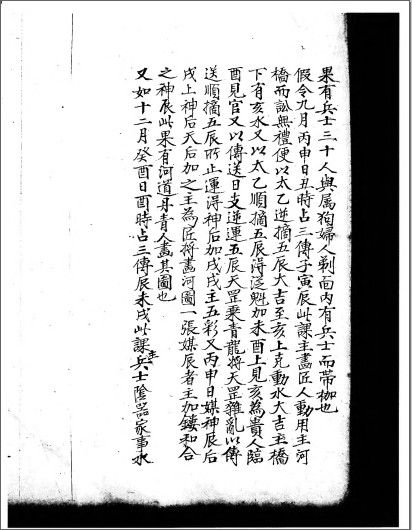 果有兵士三十人與屬狗婦人剃面內有兵士而帶枷也
假令九月丙申日丑時占三傳子寅辰此課主畫匠人動用主河
橋而訟無禮便以太乙逆摘五辰大吉至亥上克動水大吉主橋
下有亥水又以太乙順摘五辰得從魁加未酉上見亥為貴人臨
酉見官又以傳送日支逆運五辰天罡乘青龍將天罡雜亂以傳
送順摘五辰所止運得神后加戌戌主五彩又丙申日媒神辰后
戌上神后天后加之主為匠將畫河圖一張媒辰者主加鏤和合
之神辰此果有河道丹青人畫其圖也
又如十二月癸酉日酉時占三傳辰未戌此課主兵士陰器家事水